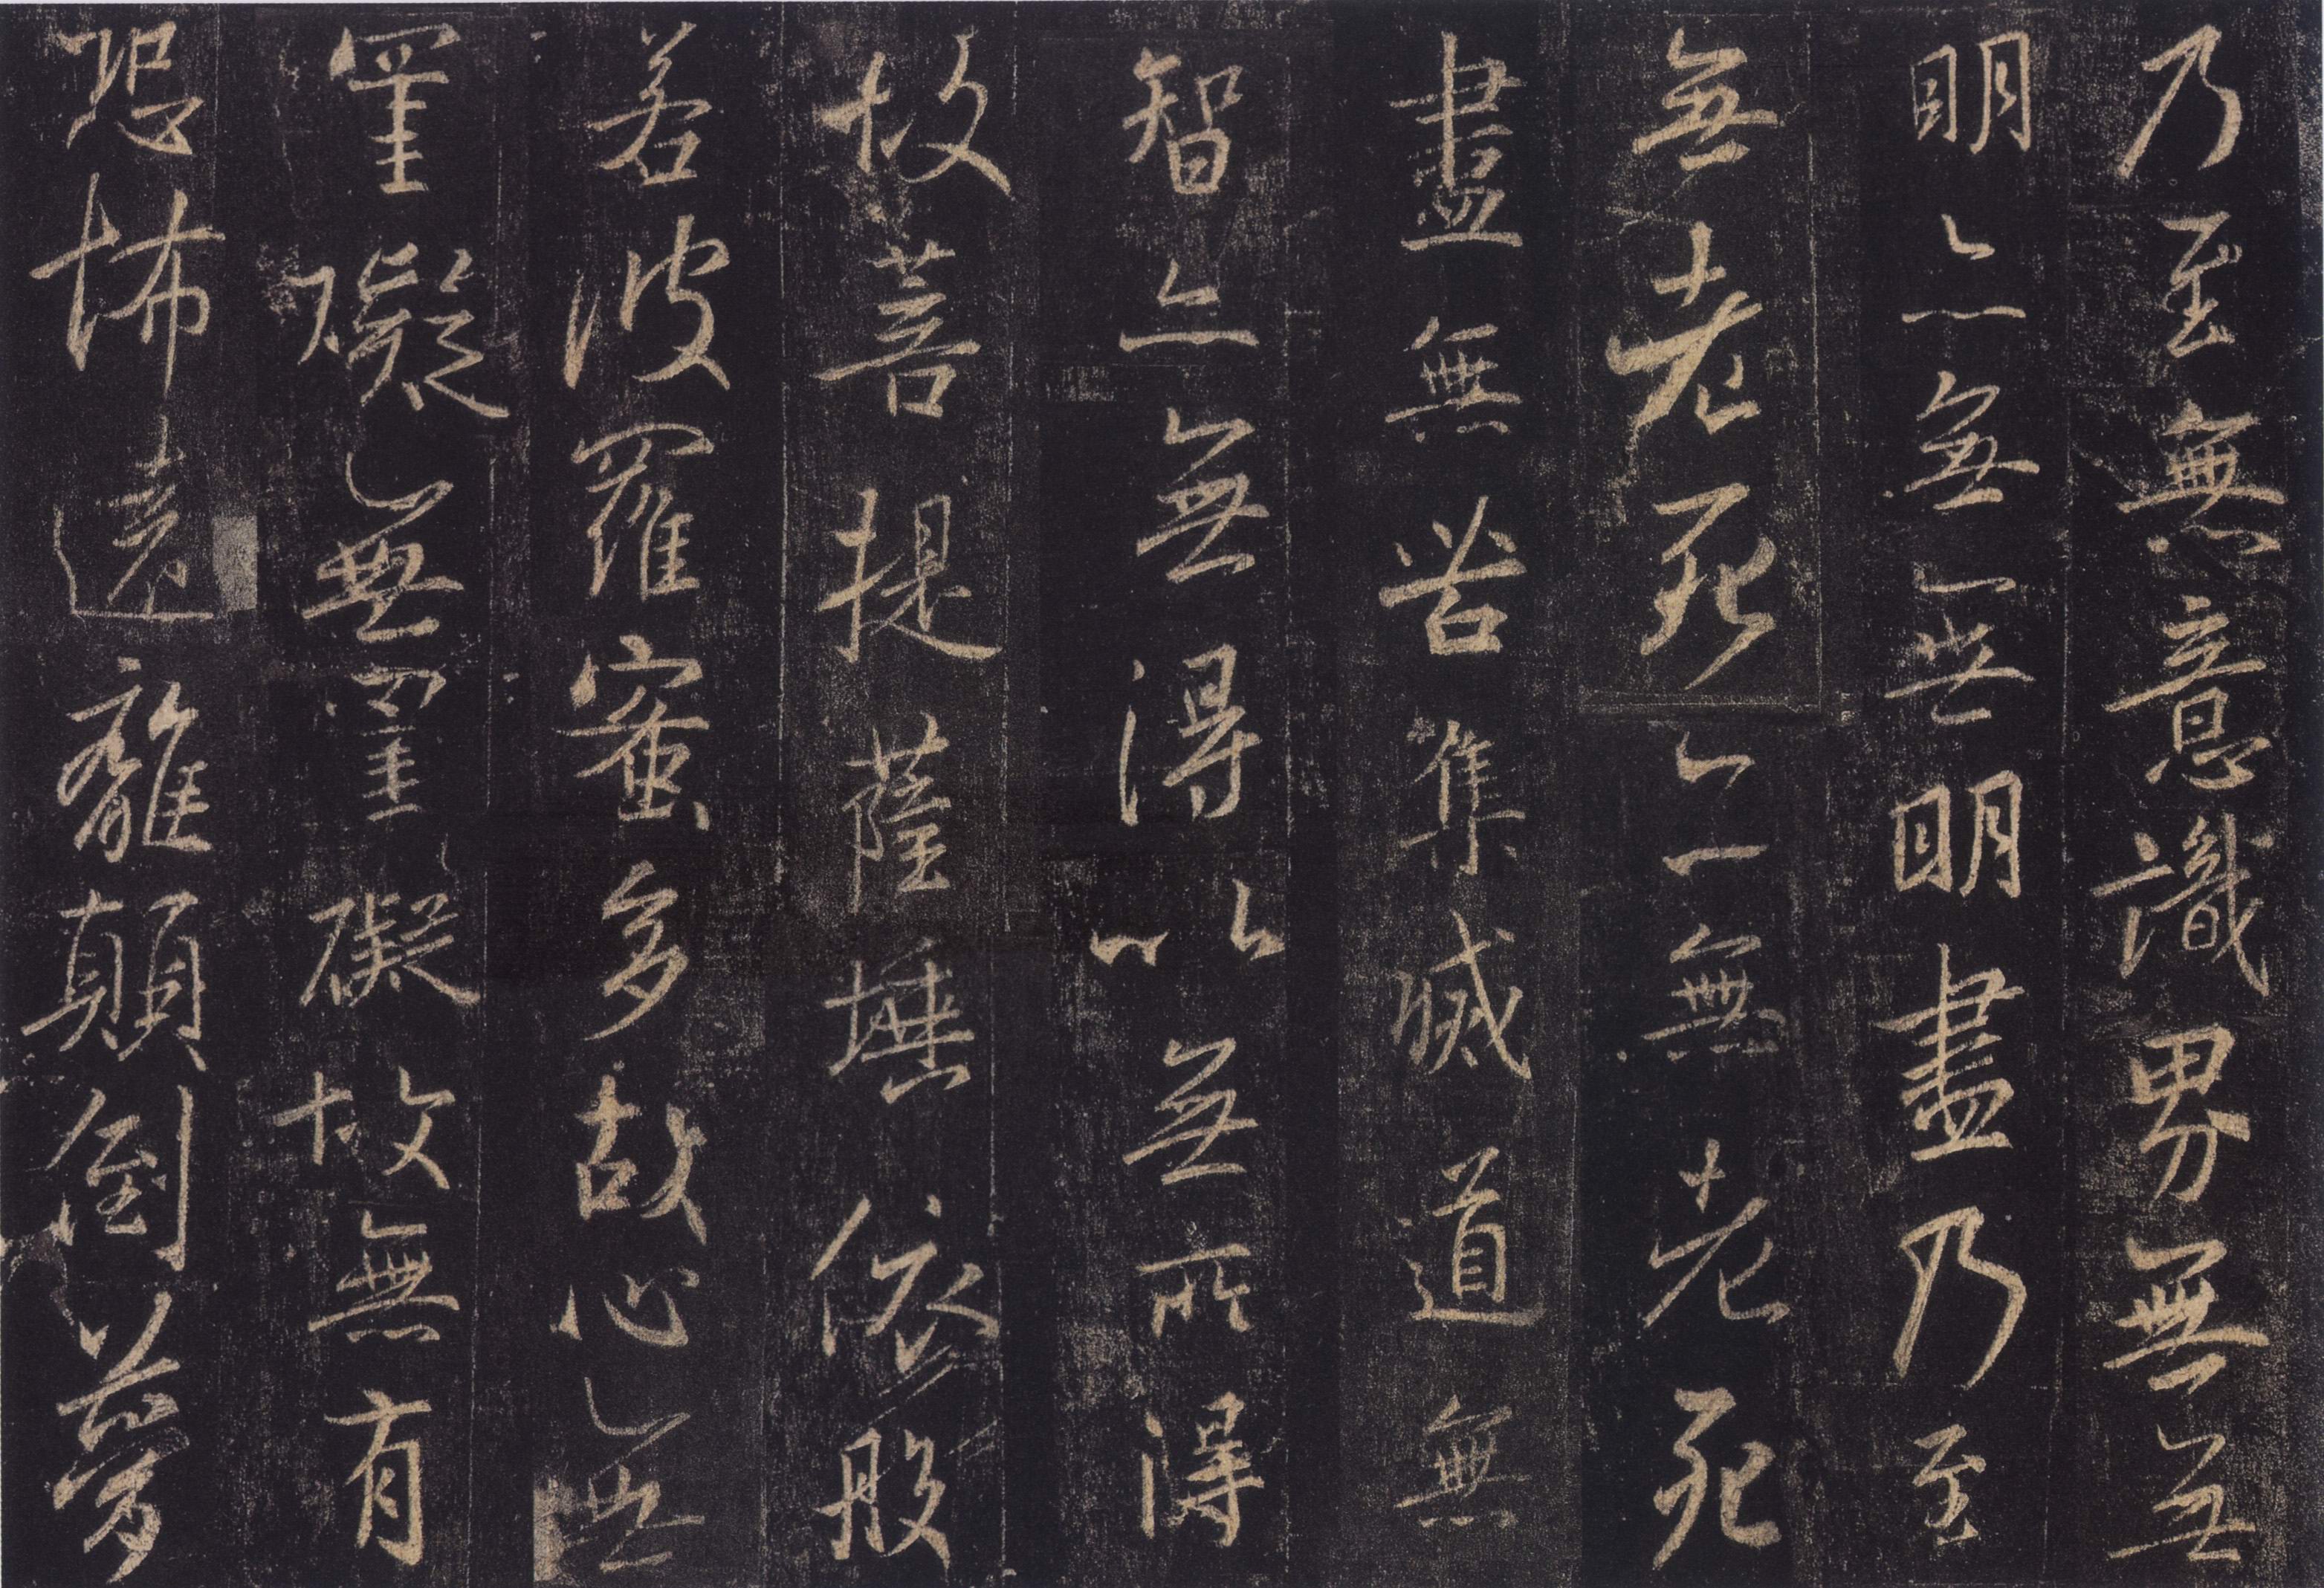 乃至無意識界無無
明亦無無明盡乃至
無老死亦無老死
盡無苦集滅道無
智亦無得以無所得
故菩提薩埵依般
若波羅蜜多故心無
罣礙無罣礙故無有
恐怖遠離顛倒夢